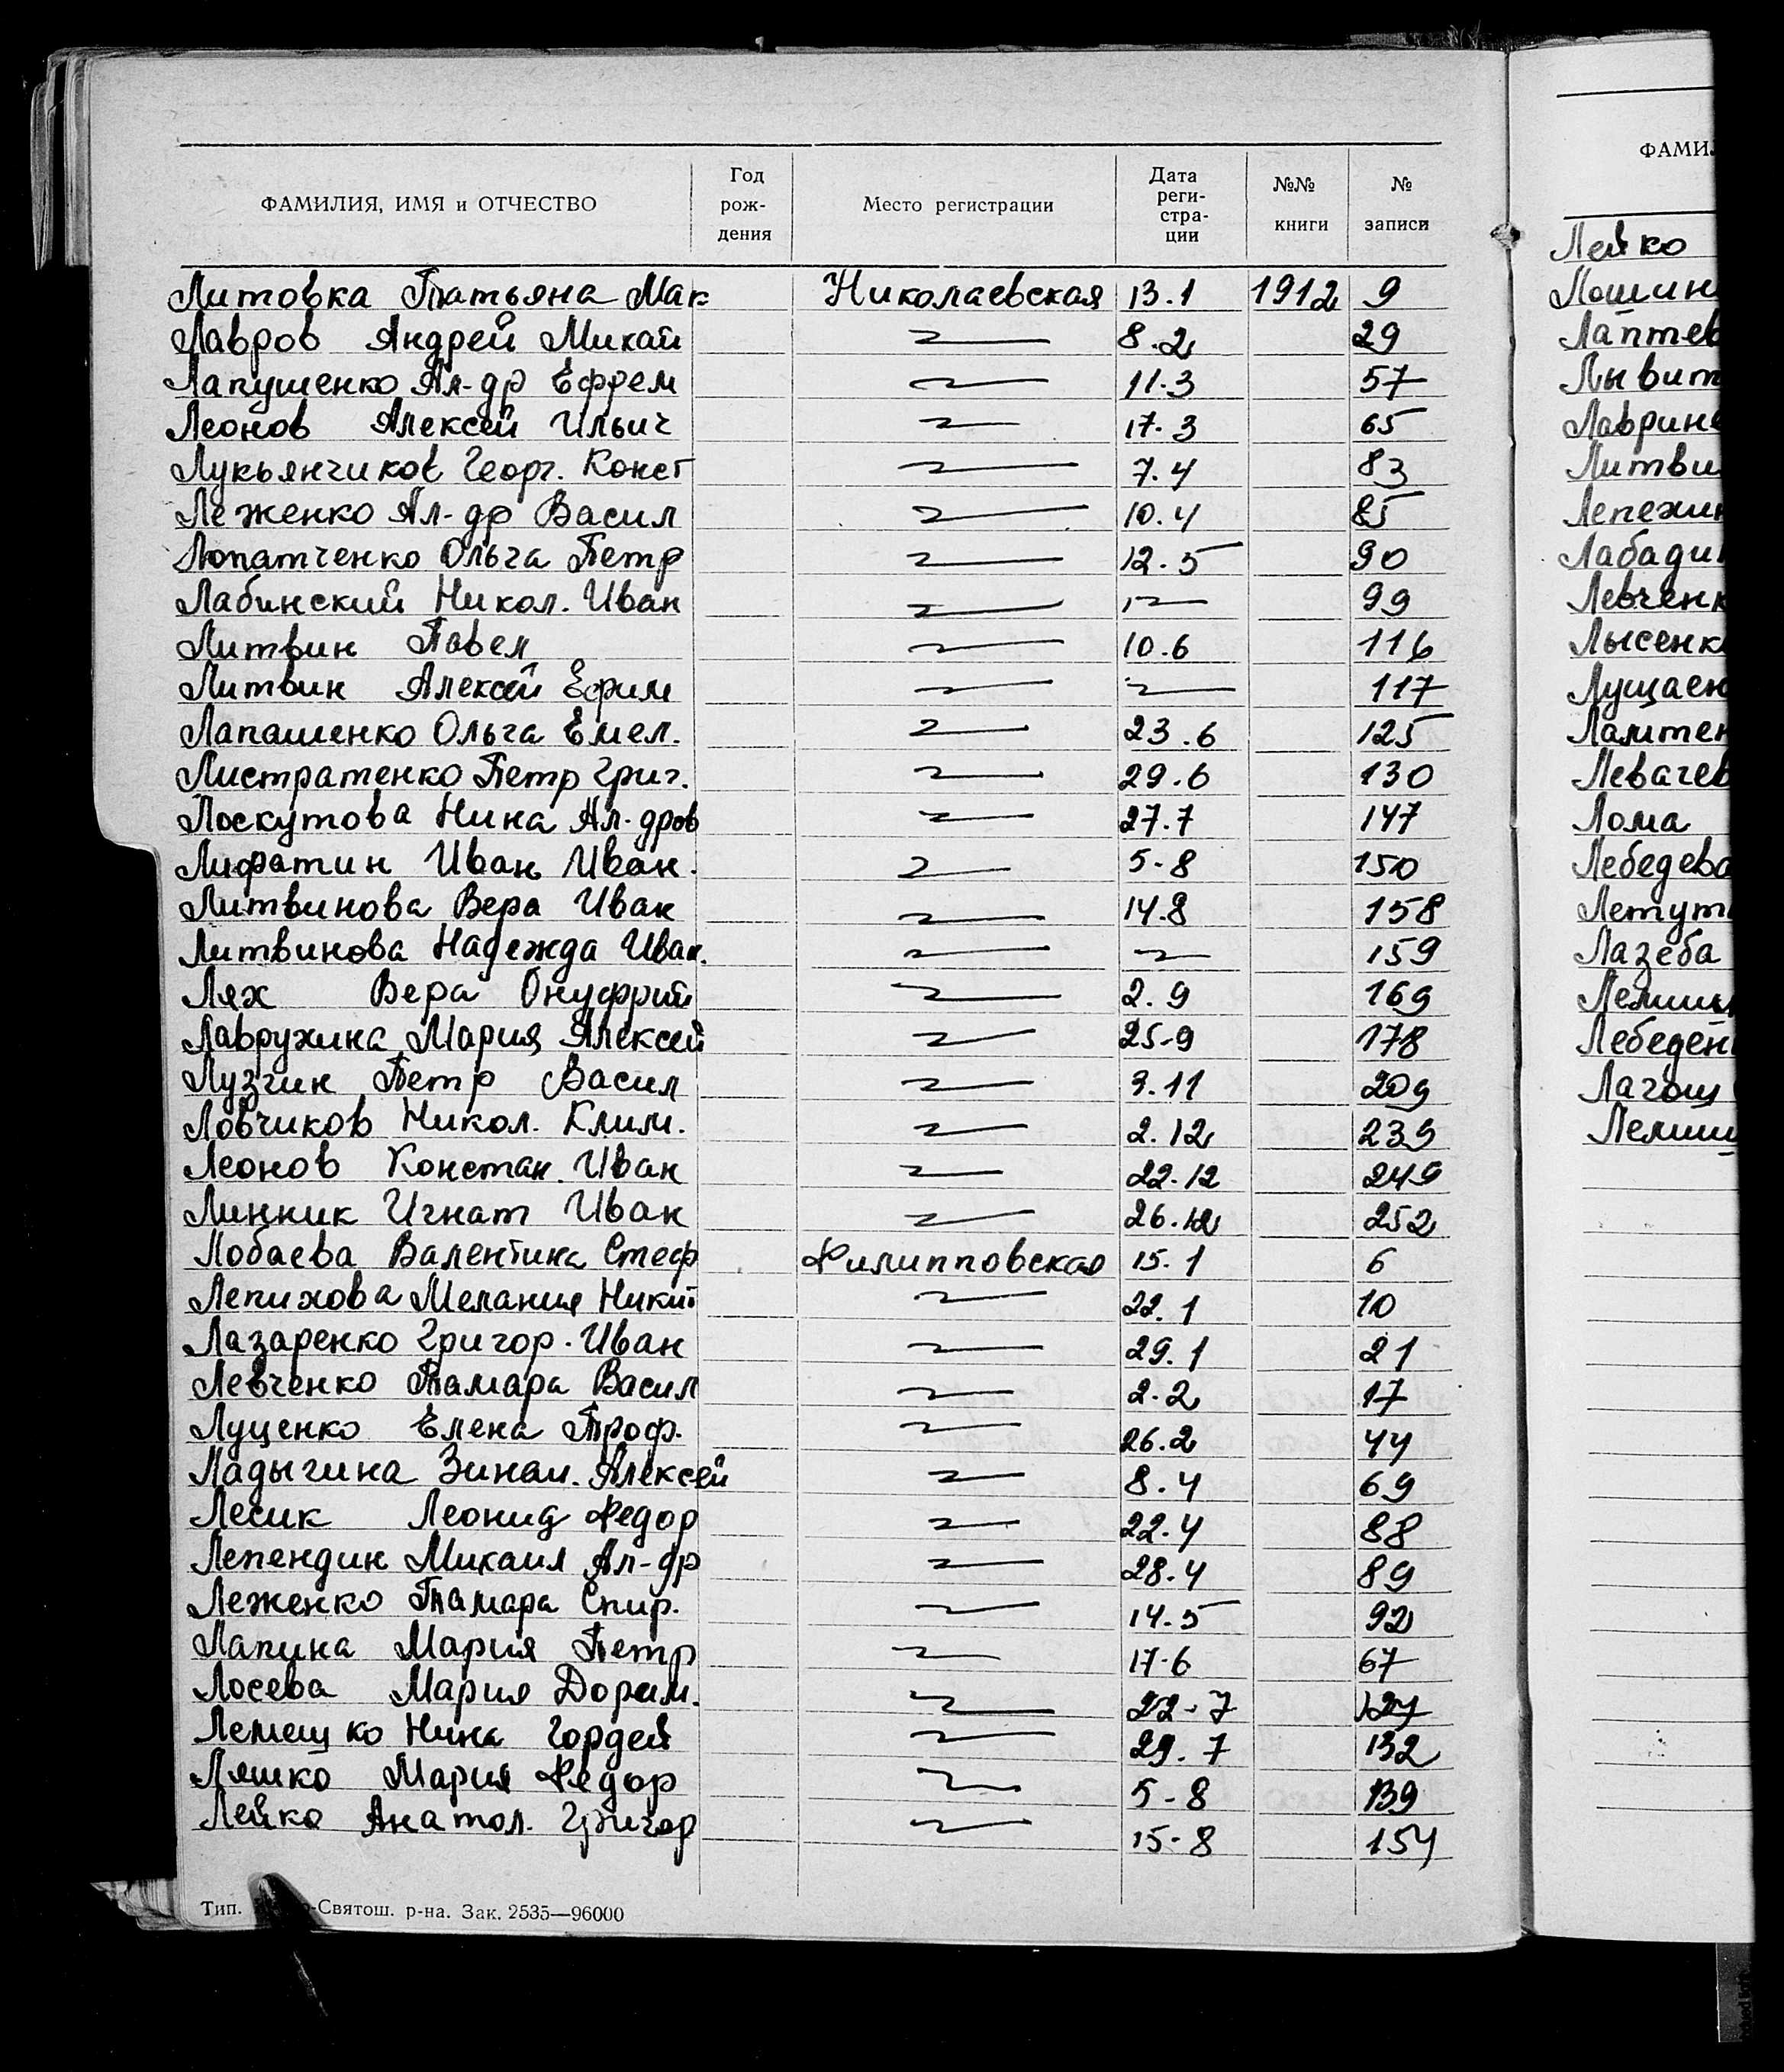 ФАМИЛИЯ, ИМЯ и ОТЧЕСТВО Год рождения Место регистрации Дата регистрации №№ книги № записи
Литовка Татьяна Мак Николаевская 13.1 1912 9
Лавров Андрей Михай 8.2 29
Лапушенко Ал-др Ефрем 11.3 57
Леонов Алексей Ильич 17.3 65
Лукьянчиков Георг. Конст 7.4 83
Леженко Ал-др Васил 10.4 85
Лопатченко Ольга Петр 12.5 90
Лабинский Никол. Иван 99
Литвин Павел 10.6 116
Литвин Алексей Ефим 117
Лапашенко Ольга Емел. 23.6 125
Листратенко Петр Григ. 29.6 130
Лоскутова Нина Ал-дров 27.7 147
Лифатин Иван Иван. 5-8 150
Литвинова Вера Иван 14.8 158
Литвинова Надежда Иван. 159
Лях Вера Онуфрий 2.9 169
Лаврухина Мария Алексей 25-9 178
Лузгин Петр Васил 9.11 209
Ловчиков Никол. Клим. 2.12 239
Леонов Констан. Иван 22.12 249
Линник Игнат Иван 26.12 252
Лобаева Валентина Стеф Филипповская 15.1 6
Лепихова Мелания Никит 22.1 10
Лазаренко Григор. Иван 29.1 21
Левченко Тамара Васил 2.2 17
Луценко Елена Троф. 26.2 44
Ладыгина Зинаи. Алексей 8.4 69
Лесик Леонид Федор 22.4 88
Лепендин Михаил Ал-др 28.4 89
Леженко Тамара Спир. 14.5 92
Лапина Мария Петр 17-6 67
Лосева Мария 22-7 127
Лемешко Нина Гордей 29.7 132
Ляшко Мария Федор 5-8 139
Лейко Анатол. Григор 15-8 154
Тип. -Святош. р-на. Зак. 2535—96000
ФАМИЛ
Лейко
Лошин
Лаптев
Лывит
Лаврине
Литви
Лепехин
Лабади
Левченк
Лысенк
Лущаен
Левачев
Лома
Лебедева
Летут
Лазеба
Лебеден
Лагощ